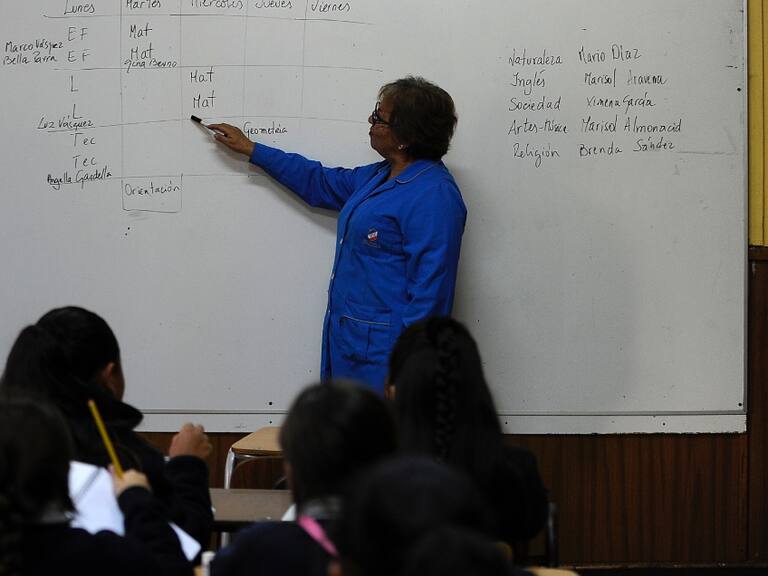 Lunes Martes Miércoles Jueves Viernes
EF Mat
Marco Vásquez
Bella Parra EF Mat
Gina Bruno
L Mat
L Mat
Luz Vásquez
Tec Geometria
Tec
Angella Gardella
Orientación
Naturaleza Mario Díaz
Inglés Marisol Aravena
Sociedad Ximena García
Artes-Música Marisol Almonacid
Religión Brenda Sández